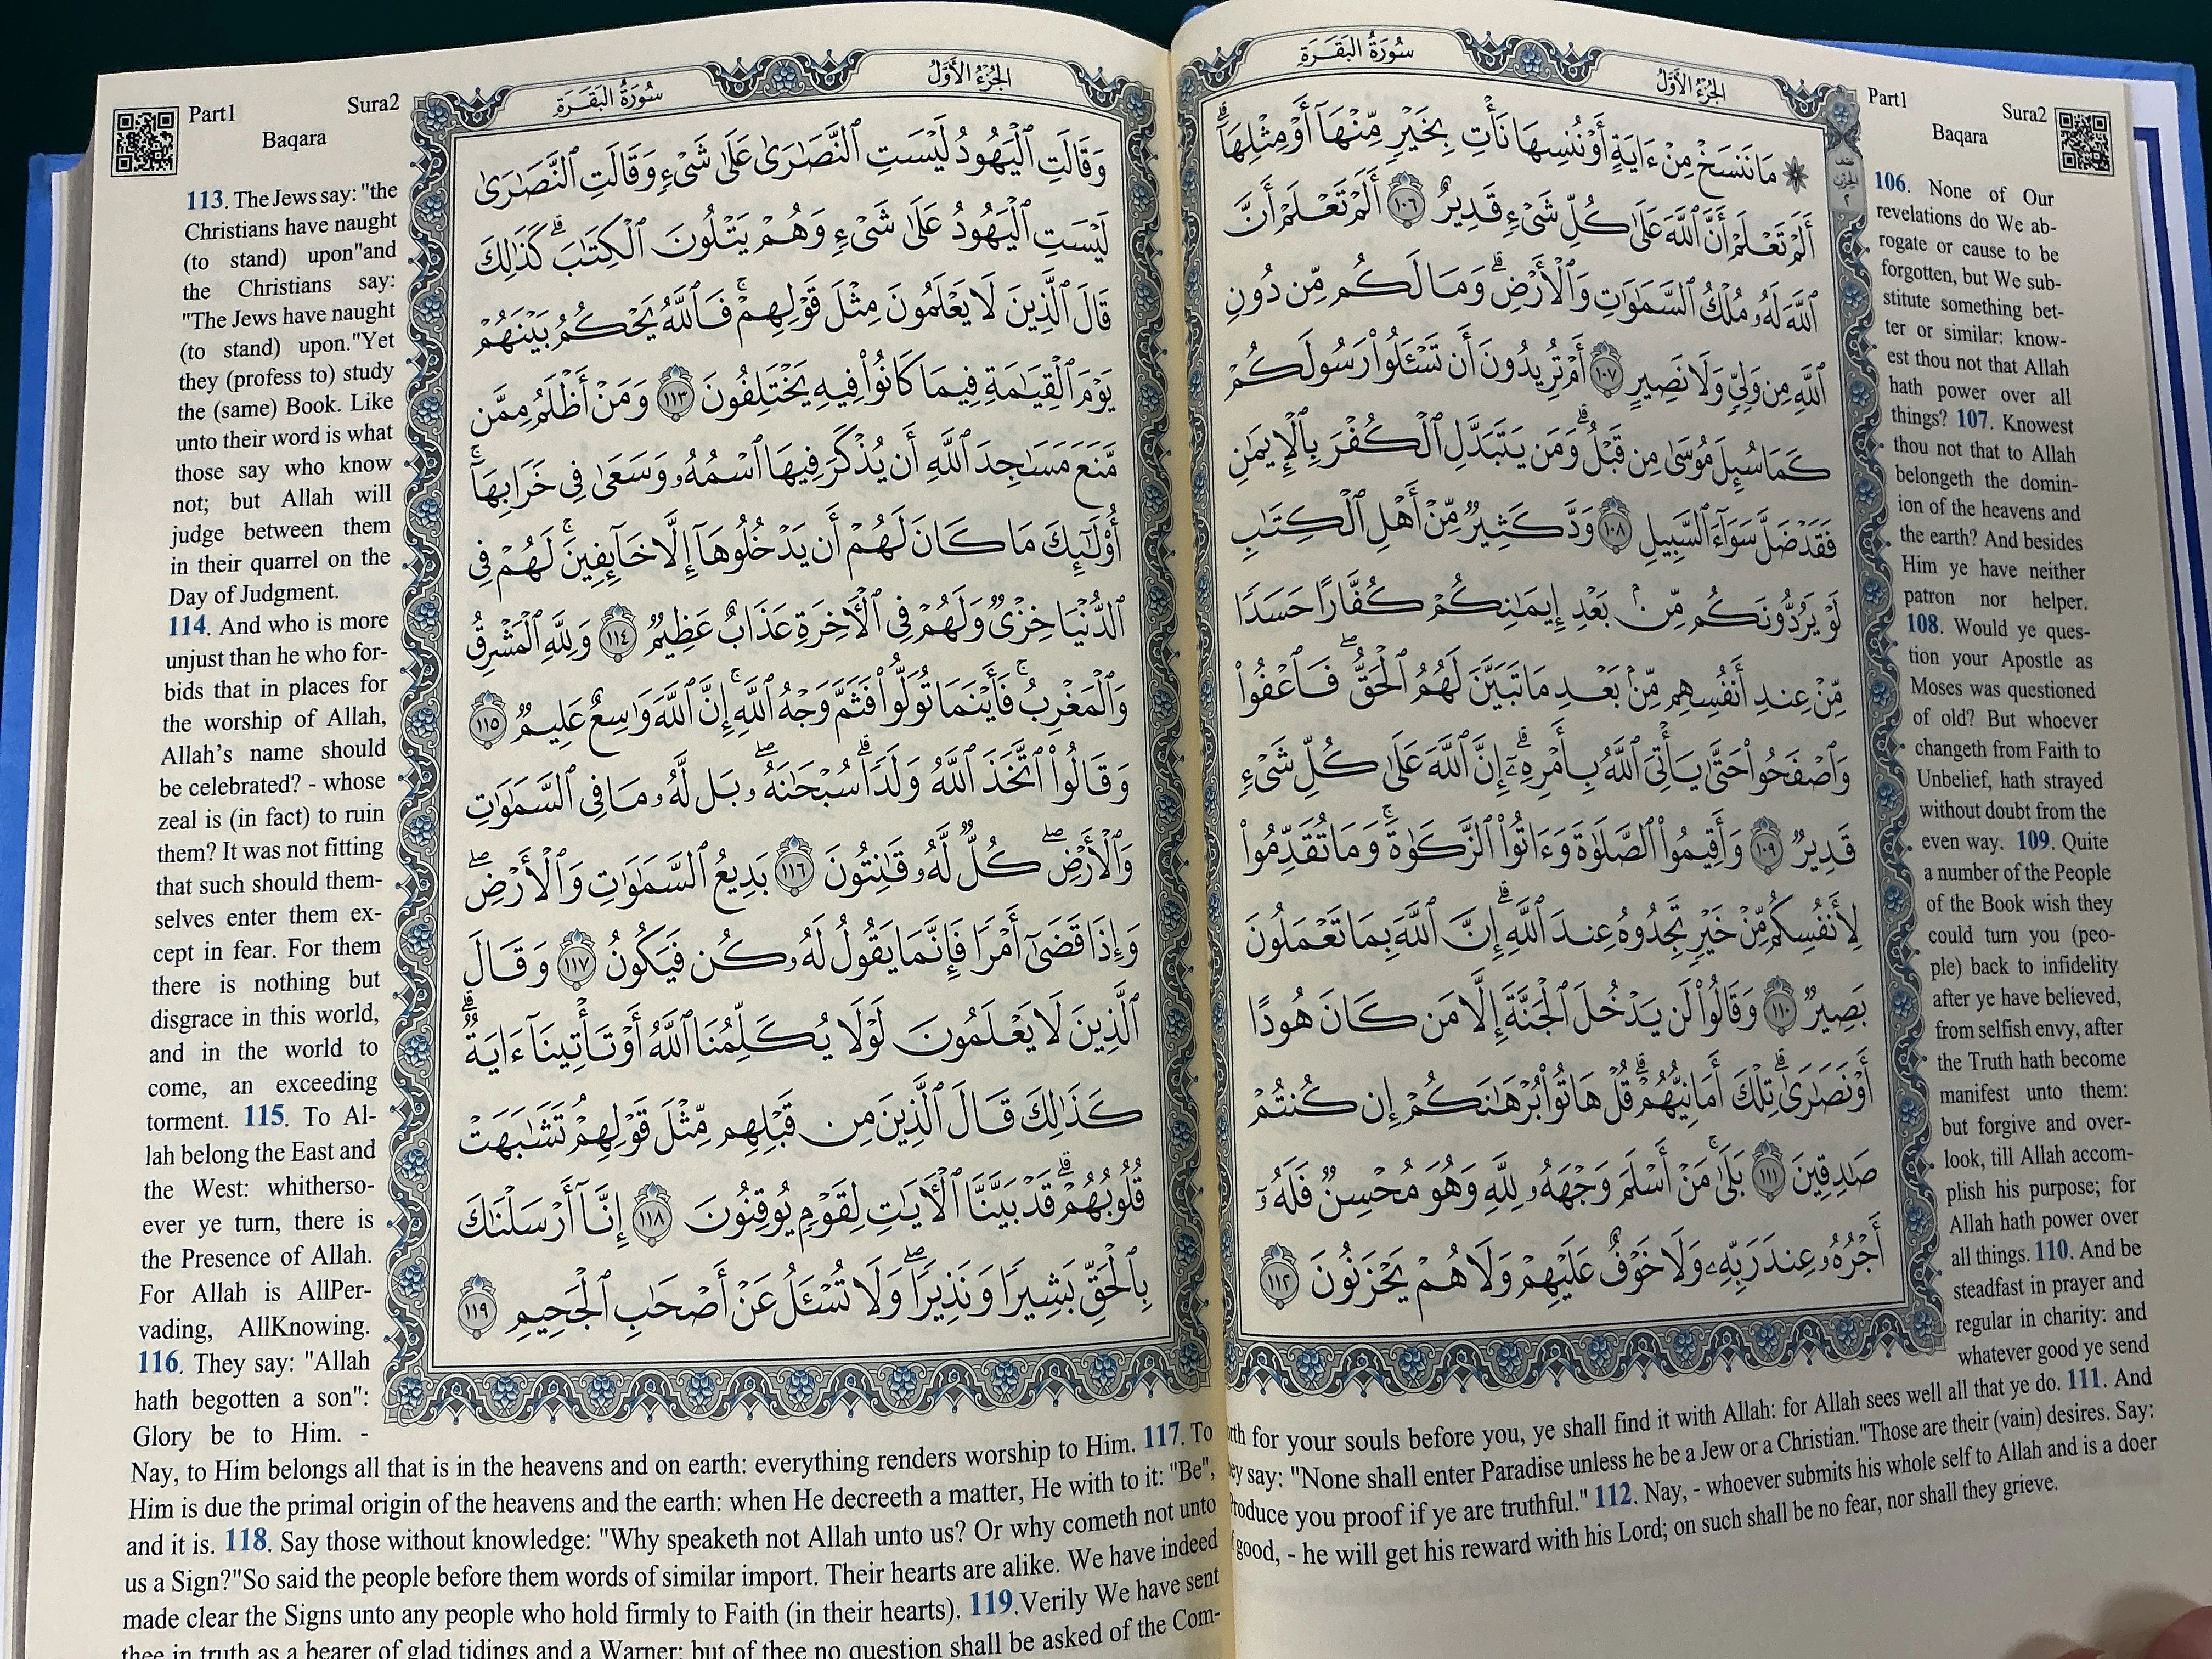 سُورَةُ البَقَرَةِ
الجُزْءُ الأَوَّلُ
۞ مَا نَنسَخْ مِنْ ءَايَةٍ أَوْ نُنسِهَا نَأْتِ بِخَيْرٍ مِّنْهَآ أَوْ مِثْلِهَآۗ
أَلَمْ تَعْلَمْ أَنَّ ٱللَّهَ عَلَىٰ كُلِّ شَىْءٍ قَدِيرٌ ١٠٦ أَلَمْ تَعْلَمْ أَنَّ
ٱللَّهَ لَهُۥ مُلْكُ ٱلسَّمَٰوَٰتِ وَٱلْأَرْضِۗ وَمَا لَكُم مِّن دُونِ
ٱللَّهِ مِن وَلِىٍّ وَلَا نَصِيرٍ ١٠٧ أَمْ تُرِيدُونَ أَن تَسْـَٔلُوا۟ رَسُولَكُمْ
كَمَا سُئِلَ مُوسَىٰ مِن قَبْلُۗ وَمَن يَتَبَدَّلِ ٱلْكُفْرَ بِٱلْإِيمَٰنِ
فَقَدْ ضَلَّ سَوَآءَ ٱلسَّبِيلِ ١٠٨ وَدَّ كَثِيرٌ مِّنْ أَهْلِ ٱلْكِتَٰبِ
لَوْ يَرُدُّونَكُم مِّنۢ بَعْدِ إِيمَٰنِكُمْ كُفَّارًا حَسَدًا
مِّنْ عِندِ أَنفُسِهِم مِّنۢ بَعْدِ مَا تَبَيَّنَ لَهُمُ ٱلْحَقُّۖ فَٱعْفُوا۟
وَٱصْفَحُوا۟ حَتَّىٰ يَأْتِىَ ٱللَّهُ بِأَمْرِهِۦٓۗ إِنَّ ٱللَّهَ عَلَىٰ كُلِّ شَىْءٍ
قَدِيرٌ ١٠٩ وَأَقِيمُوا۟ ٱلصَّلَوٰةَ وَءَاتُوا۟ ٱلزَّكَوٰةَۚ وَمَا تُقَدِّمُوا۟
لِأَنفُسِكُم مِّنْ خَيْرٍ تَجِدُوهُ عِندَ ٱللَّهِۗ إِنَّ ٱللَّهَ بِمَا تَعْمَلُونَ
بَصِيرٌ ١١٠ وَقَالُوا۟ لَن يَدْخُلَ ٱلْجَنَّةَ إِلَّا مَن كَانَ هُودًا
أَوْ نَصَٰرَىٰۗ تِلْكَ أَمَانِيُّهُمْۗ قُلْ هَاتُوا۟ بُرْهَٰنَكُمْ إِن كُنتُمْ
صَٰدِقِينَ ١١١ بَلَىٰۚ مَنْ أَسْلَمَ وَجْهَهُۥ لِلَّهِ وَهُوَ مُحْسِنٌ فَلَهُۥٓ
أَجْرُهُۥ عِندَ رَبِّهِۦ وَلَا خَوْفٌ عَلَيْهِمْ وَلَا هُمْ يَحْزَنُونَ ١١٢
نصف
الحزب
٢
Part1
Sura2
Baqara
106. None of Our
revelations do We ab-
rogate or cause to be
forgotten, but We sub-
stitute something bet-
ter or similar: know-
est thou not that Allah
hath power over all
things? 107. Knowest
thou not that to Allah
belongeth the domin-
ion of the heavens and
the earth? And besides
Him ye have neither
patron nor helper.
108. Would ye ques-
tion your Apostle as
Moses was questioned
of old? But whoever
changeth from Faith to
Unbelief, hath strayed
without doubt from the
even way. 109. Quite
a number of the People
of the Book wish they
could turn you (peo-
ple) back to infidelity
after ye have believed,
from selfish envy, after
the Truth hath become
manifest unto them:
but forgive and over-
look, till Allah accom-
plish his purpose; for
Allah hath power over
all things. 110. And be
steadfast in prayer and
regular in charity: and
whatever good ye send
for your souls before you, ye shall find it with Allah: for Allah sees well all that ye do. 111. And
say: "None shall enter Paradise unless he be a Jew or a Christian."Those are their (vain) desires. Say:
roduce you proof if ye are truthful." 112. Nay, - whoever submits his whole self to Allah and is a doer
good, - he will get his reward with his Lord; on such shall be no fear, nor shall they grieve.
سُورَةُ البَقَرَةِ
الجُزْءُ الأَوَّلُ
وَقَالَتِ ٱلْيَهُودُ لَيْسَتِ ٱلنَّصَٰرَىٰ عَلَىٰ شَىْءٍ وَقَالَتِ ٱلنَّصَٰرَىٰ
لَيْسَتِ ٱلْيَهُودُ عَلَىٰ شَىْءٍ وَهُمْ يَتْلُونَ ٱلْكِتَٰبَۗ كَذَٰلِكَ
قَالَ ٱلَّذِينَ لَا يَعْلَمُونَ مِثْلَ قَوْلِهِمْۚ فَٱللَّهُ يَحْكُمُ بَيْنَهُمْ
يَوْمَ ٱلْقِيَٰمَةِ فِيمَا كَانُوا۟ فِيهِ يَخْتَلِفُونَ ١١٣ وَمَنْ أَظْلَمُ مِمَّن
مَّنَعَ مَسَٰجِدَ ٱللَّهِ أَن يُذْكَرَ فِيهَا ٱسْمُهُۥ وَسَعَىٰ فِى خَرَابِهَآۚ
أُو۟لَٰٓئِكَ مَا كَانَ لَهُمْ أَن يَدْخُلُوهَآ إِلَّا خَآئِفِينَۚ لَهُمْ فِى
ٱلدُّنْيَا خِزْىٌ وَلَهُمْ فِى ٱلْءَاخِرَةِ عَذَابٌ عَظِيمٌ ١١٤ وَلِلَّهِ ٱلْمَشْرِقُ
وَٱلْمَغْرِبُۚ فَأَيْنَمَا تُوَلُّوا۟ فَثَمَّ وَجْهُ ٱللَّهِۚ إِنَّ ٱللَّهَ وَٰسِعٌ عَلِيمٌ ١١٥
وَقَالُوا۟ ٱتَّخَذَ ٱللَّهُ وَلَدًاۗ سُبْحَٰنَهُۥۖ بَل لَّهُۥ مَا فِى ٱلسَّمَٰوَٰتِ
وَٱلْأَرْضِۖ كُلٌّ لَّهُۥ قَٰنِتُونَ ١١٦ بَدِيعُ ٱلسَّمَٰوَٰتِ وَٱلْأَرْضِۖ
وَإِذَا قَضَىٰٓ أَمْرًا فَإِنَّمَا يَقُولُ لَهُۥ كُن فَيَكُونُ ١١٧ وَقَالَ
ٱلَّذِينَ لَا يَعْلَمُونَ لَوْلَا يُكَلِّمُنَا ٱللَّهُ أَوْ تَأْتِينَآ ءَايَةٌۗ
كَذَٰلِكَ قَالَ ٱلَّذِينَ مِن قَبْلِهِم مِّثْلَ قَوْلِهِمْۘ تَشَٰبَهَتْ
قُلُوبُهُمْۗ قَدْ بَيَّنَّا ٱلْءَايَٰتِ لِقَوْمٍ يُوقِنُونَ ١١٨ إِنَّآ أَرْسَلْنَٰكَ
بِٱلْحَقِّ بَشِيرًا وَنَذِيرًاۖ وَلَا تُسْـَٔلُ عَنْ أَصْحَٰبِ ٱلْجَحِيمِ ١١٩
Part1
Sura2
Baqara
113. The Jews say: "the
Christians have naught
(to stand) upon"and
the Christians say:
"The Jews have naught
(to stand) upon."Yet
they (profess to) study
the (same) Book. Like
unto their word is what
those say who know
not; but Allah will
judge between them
in their quarrel on the
Day of Judgment.
114. And who is more
unjust than he who for-
bids that in places for
the worship of Allah,
Allah's name should
be celebrated? - whose
zeal is (in fact) to ruin
them? It was not fitting
that such should them-
selves enter them ex-
cept in fear. For them
there is nothing but
disgrace in this world,
and in the world to
come, an exceeding
torment. 115. To Al-
lah belong the East and
the West: whitherso-
ever ye turn, there is
the Presence of Allah.
For Allah is AllPer-
vading, AllKnowing.
116. They say: "Allah
hath begotten a son":
Glory be to Him. -
Nay, to Him belongs all that is in the heavens and on earth: everything renders worship to Him. 117. To
Him is due the primal origin of the heavens and the earth: when He decreeth a matter, He with to it: "Be",
and it is. 118. Say those without knowledge: "Why speaketh not Allah unto us? Or why cometh not unto
us a Sign?"So said the people before them words of similar import. Their hearts are alike. We have indeed
made clear the Signs unto any people who hold firmly to Faith (in their hearts). 119.Verily We have sent
thee in truth as a bearer of glad tidings and a Warner: but of thee no question shall be asked of the Com-